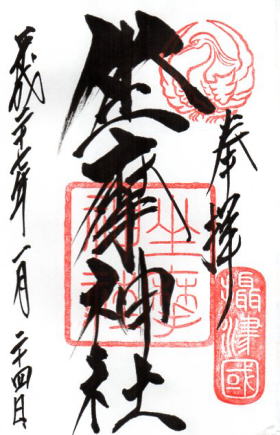 奉拝
摂津國
坐摩神社
坐摩神社
平成二十七年一月二十四日